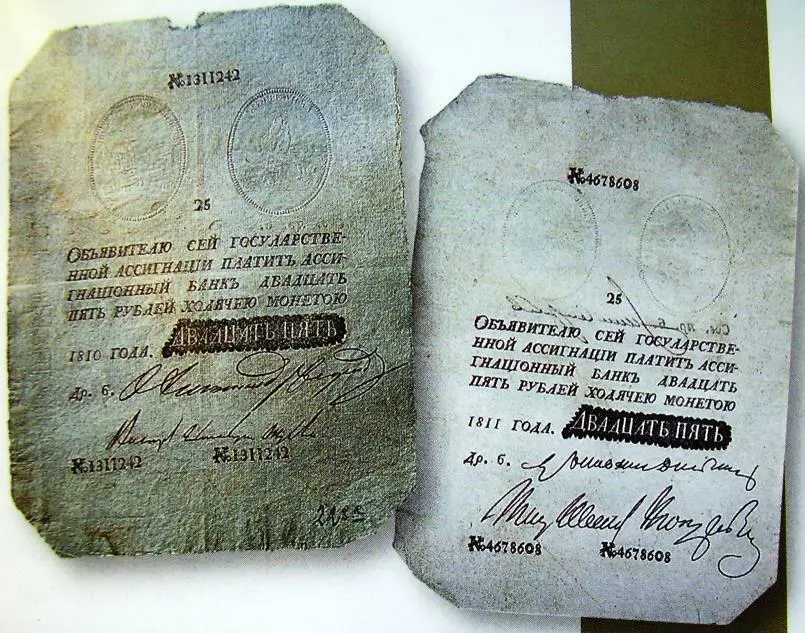 №1311242
25
Объявителю сей государстве-
нной ассигнаціи платитъ асси-
гнаціонный банкъ двадцать
пять рублей ходячею монетою
1810 года. ДВАДЦАТЬ ПЯТЬ
Др. б.
№1311242 №1311242
№4678608
25
Объявителю сей государстве-
нной ассигнаціи платитъ асси-
гнаціонный банкъ двадцать
пять рублей ходячею монетою
1811 года. ДВАДЦАТЬ ПЯТЬ
Др. б.
№4678608 №4678608